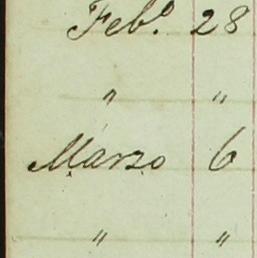 Feb.º 28
" "
Marzo 6
" "